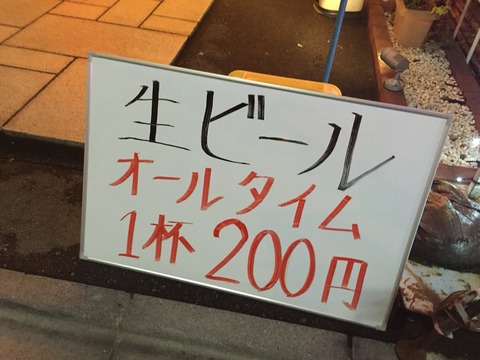 生ビール
オールタイム
1杯200円